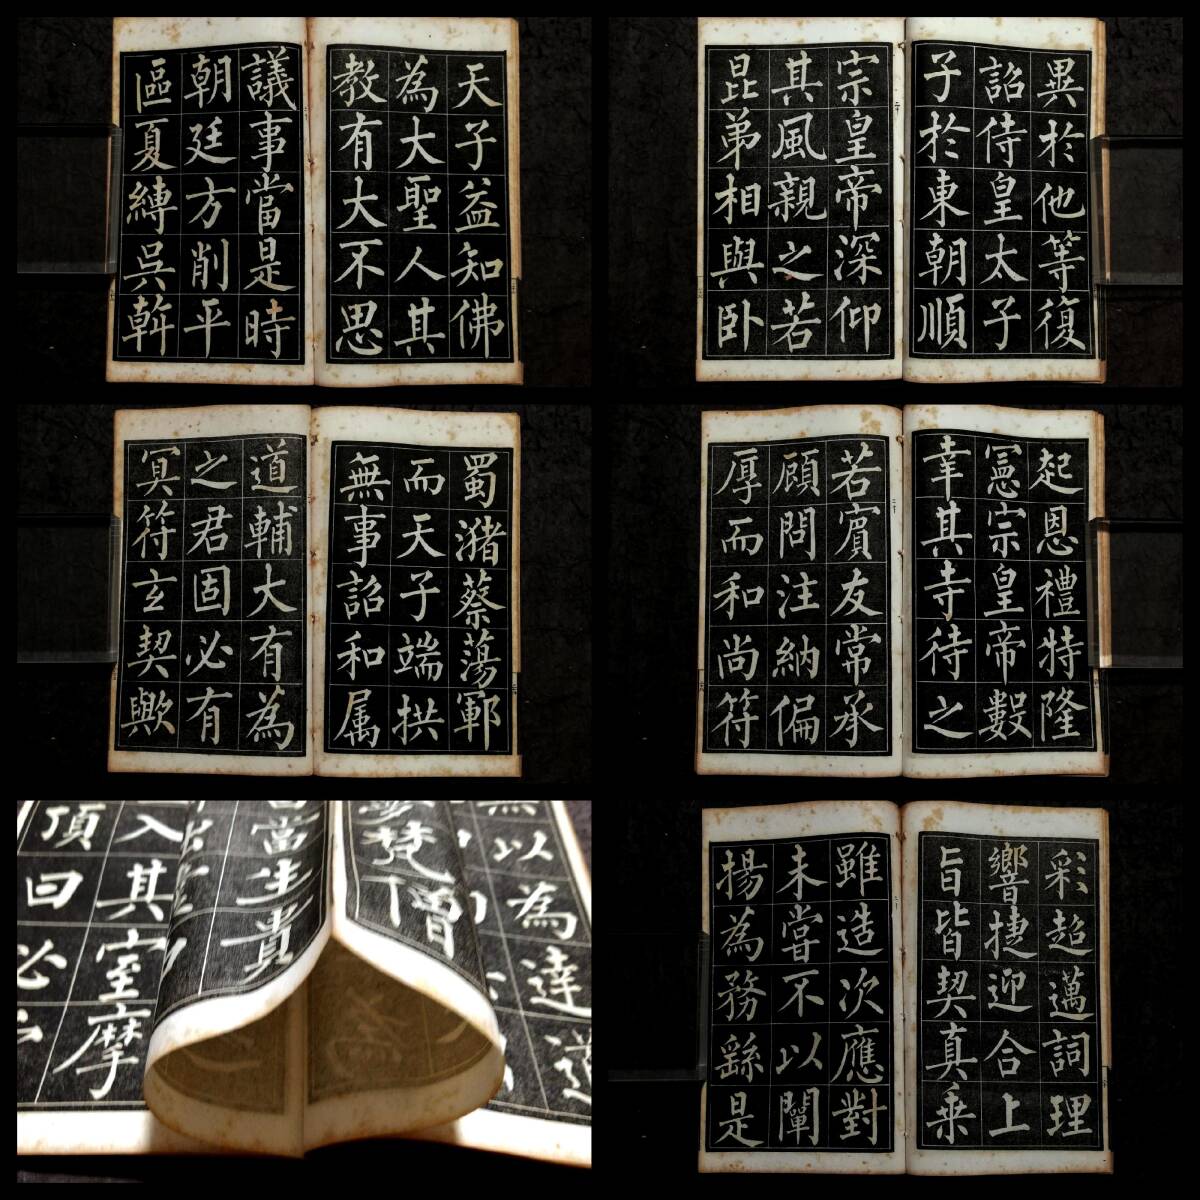 天子益知佛
為大聖人其
教有大不思
議事當是時
朝廷方削平
區夏縛吳斡
異於他等復
詔侍皇太子
子於東朝順
宗皇帝深仰
其風親之若
昆弟相與卧
蜀瀦蔡蕩鄆
而天子端拱
無事詔和属
道輔大有為
之君固必有
冥符玄契歟
起恩禮特隆
憲宗皇帝數
幸其寺待之
若賓友常承
顧問注納偏
厚而和尚符
以為達道
梵僧
當生貴
入其室摩
頂曰必
彩超邁詞理
響捷迎合上
旨皆契真乘
雖造次應對
未嘗不以闡
揚為務繇是